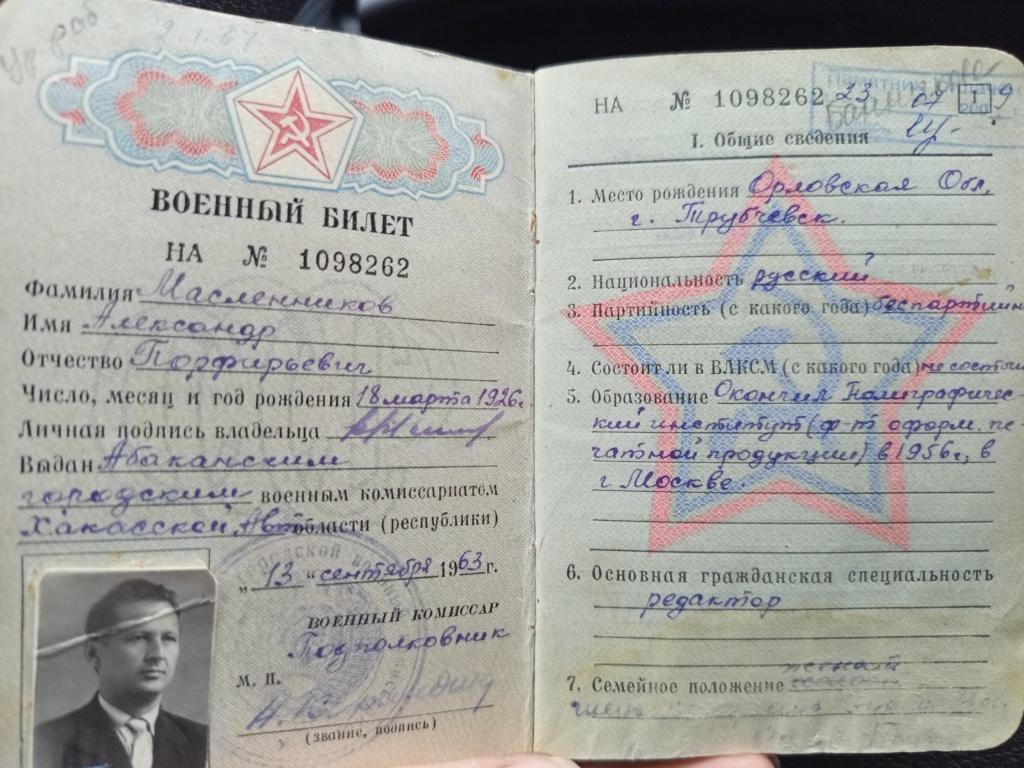 ВОЕННЫЙ БИЛЕТ
НА № 1098262
Фамилия Масленников
Имя Александр
Отчество Порфирьевич
Число, месяц и год рождения 18 марта 1926г.
Личная подпись владельца
Выдан Абаканским
городским военным комиссариатом
Хакасской Авт области (республики)
„ 13 " сентября 1963 г.
ВОЕННЫЙ КОМИССАР
Подполковник
М. П.
(звание, подпись)
НА № 1098262
I. Общие сведения
1. Место рождения Орловская Обл.
г. Трубчевск.
2. Национальность русский
3. Партийность (с какого года) беспартийн
4. Состоит ли в ВЛКСМ (с какого года) не состои
5. Образование Окончил Полиграфичес-
кий институт (ф-т оформ. пе-
чатной продукции) в 1956г, в
г Москве.
6. Основная гражданская специальность
редактор
7. Семейное положение женат